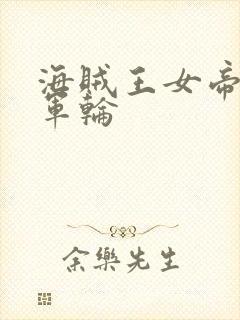 海賊王女帝
軍輪
余樂先生